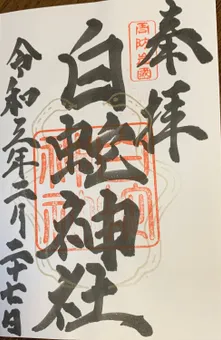 奉拝
周防岩國
白蛇神社
令和五年二月二十七日